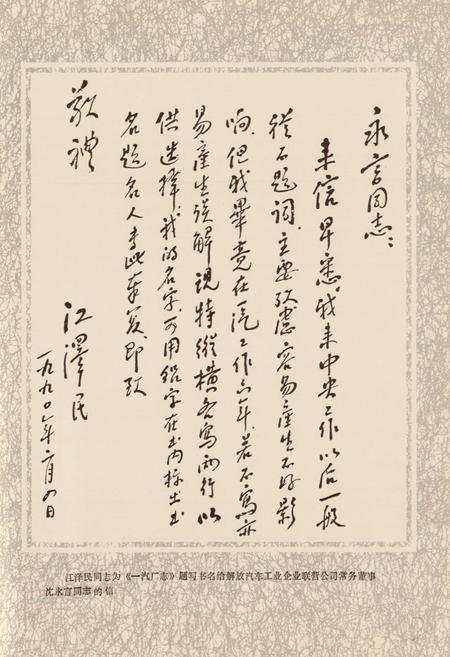 永言同志：
来信早悉。我来中央工作以后一般
从不题词，主要考虑容易產生不好影
响，但我畢竟在一汽工作六年，若不寫亦
易產生误解，现特縱横各寫两行以
供选擇。我的名字可用铅字在书内标出书
名题名人。专此奉复，即致
敬禮
江澤民
一九九〇年二月四日
江泽民同志为《一汽厂志》题写书名给解放汽车工业企业联营公司常务董事
沈永言同志的信